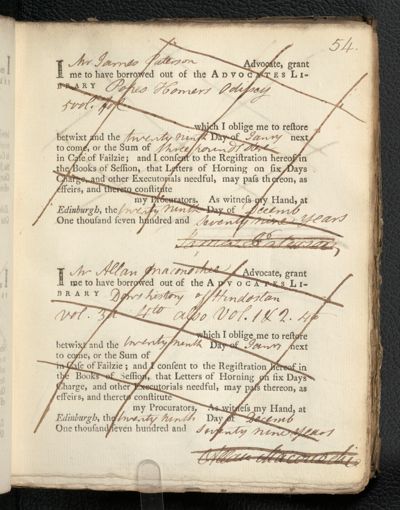 54.
I Mr James Paterson Advocate, grant
me to have borrowed out of the ADVOCATES LI-
BRARY Popes Homers Odyssey
5 vol.
which I oblige me to restore
betwixt and the twenty ninth Day of Janry next
to come, or the Sum of three pounds
in Case of Failzie; and I consent to the Registration hereof in
the Books of Session, that Letters of Horning on six Days
Charge, and other Executorials needful, may pass thereon, as
effeirs, and thereto constitute
my Procurators. As witness my Hand, at
Edinburgh, the twenty ninth Day of Decemb
One thousand seven hundred and seventy nine years
I Mr Allan Maconochie Advocate, grant
me to have borrowed out of the ADVOCATES LI-
BRARY Dows history of Hindostan
vol. 3d 4to also Vol. 1 & 2. 4to
which I oblige me to restore
betwixt and the twenty ninth Day of Janry next
to come, or the Sum of
in Case of Failzie; and I consent to the Registration hereof in
the Books of Session, that Letters of Horning on six Days
Charge, and other Executorials needful, may pass thereon, as
effeirs, and thereto constitute
my Procurators. As witness my Hand, at
Edinburgh, the twenty ninth Day of Decemb
One thousand seven hundred and seventy nine years
Allan Maconochie